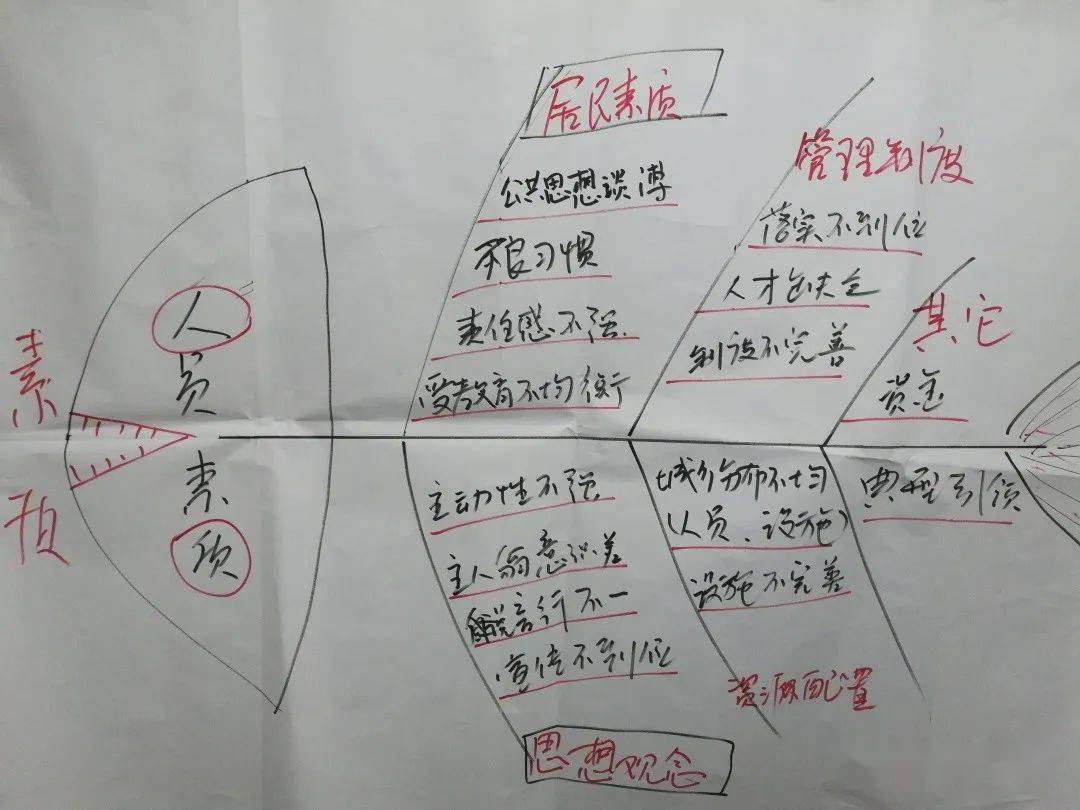 居民素质
公共思想淡薄
不良习惯
责任感不强
受教育不均衡
管理制度
落实不到位
人才
制设不完善
其它
资金
素
质
人员素质
主动性不强
主人翁意识差
言行不一
宣传不到位
思想观念
域分布不均
(人员、设施)
设施不完善
资源配置
典型引领